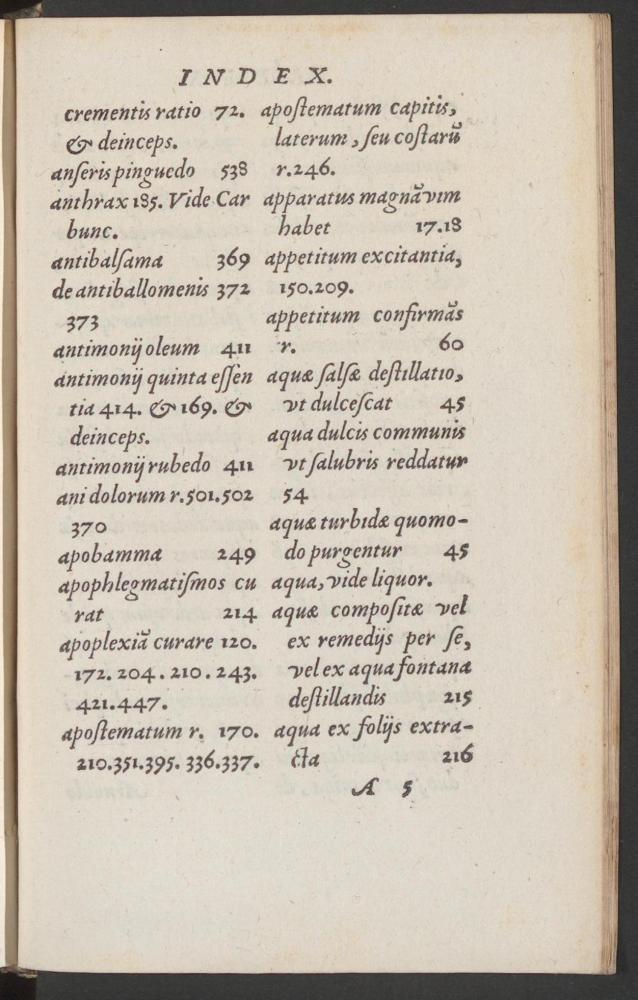 INDEX.
crementis ratio 72.
& deinceps.
anſeris pinguedo 538
anthrax 185. Vide Car
bunc.
antibalſama 369
de antiballomenis 372
373
antimonij oleum 411
antimonij quinta eſſen
tia 414. & 169. &
deinceps.
antimonij rubedo 411
ani dolorum r. 501.502
370
apobamma 249
apophlegmatiſmos cu
rat 214
apoplexiã curare 120.
172. 204. 210. 243.
421. 447.
apoſtematum r. 170.
210.351.395. 336.337.
apoſtematum capitis,
laterum, ſeu coſtarũ
r. 246.
apparatus magnã vim
habet 17.18
appetitum excitantia,
150.209.
appetitum confirmãs
r. 60
aquæ ſalſæ deſtillatio,
vt dulceſcat 45
aqua dulcis communis
vt ſalubris reddatur
54
aquæ turbidæ quomo-
do purgentur 45
aqua, vide liquor.
aquæ compoſitæ vel
ex remedijs per ſe,
vel ex aqua fontana
deſtillandis 215
aqua ex folijs extra-
cta 216
A 5